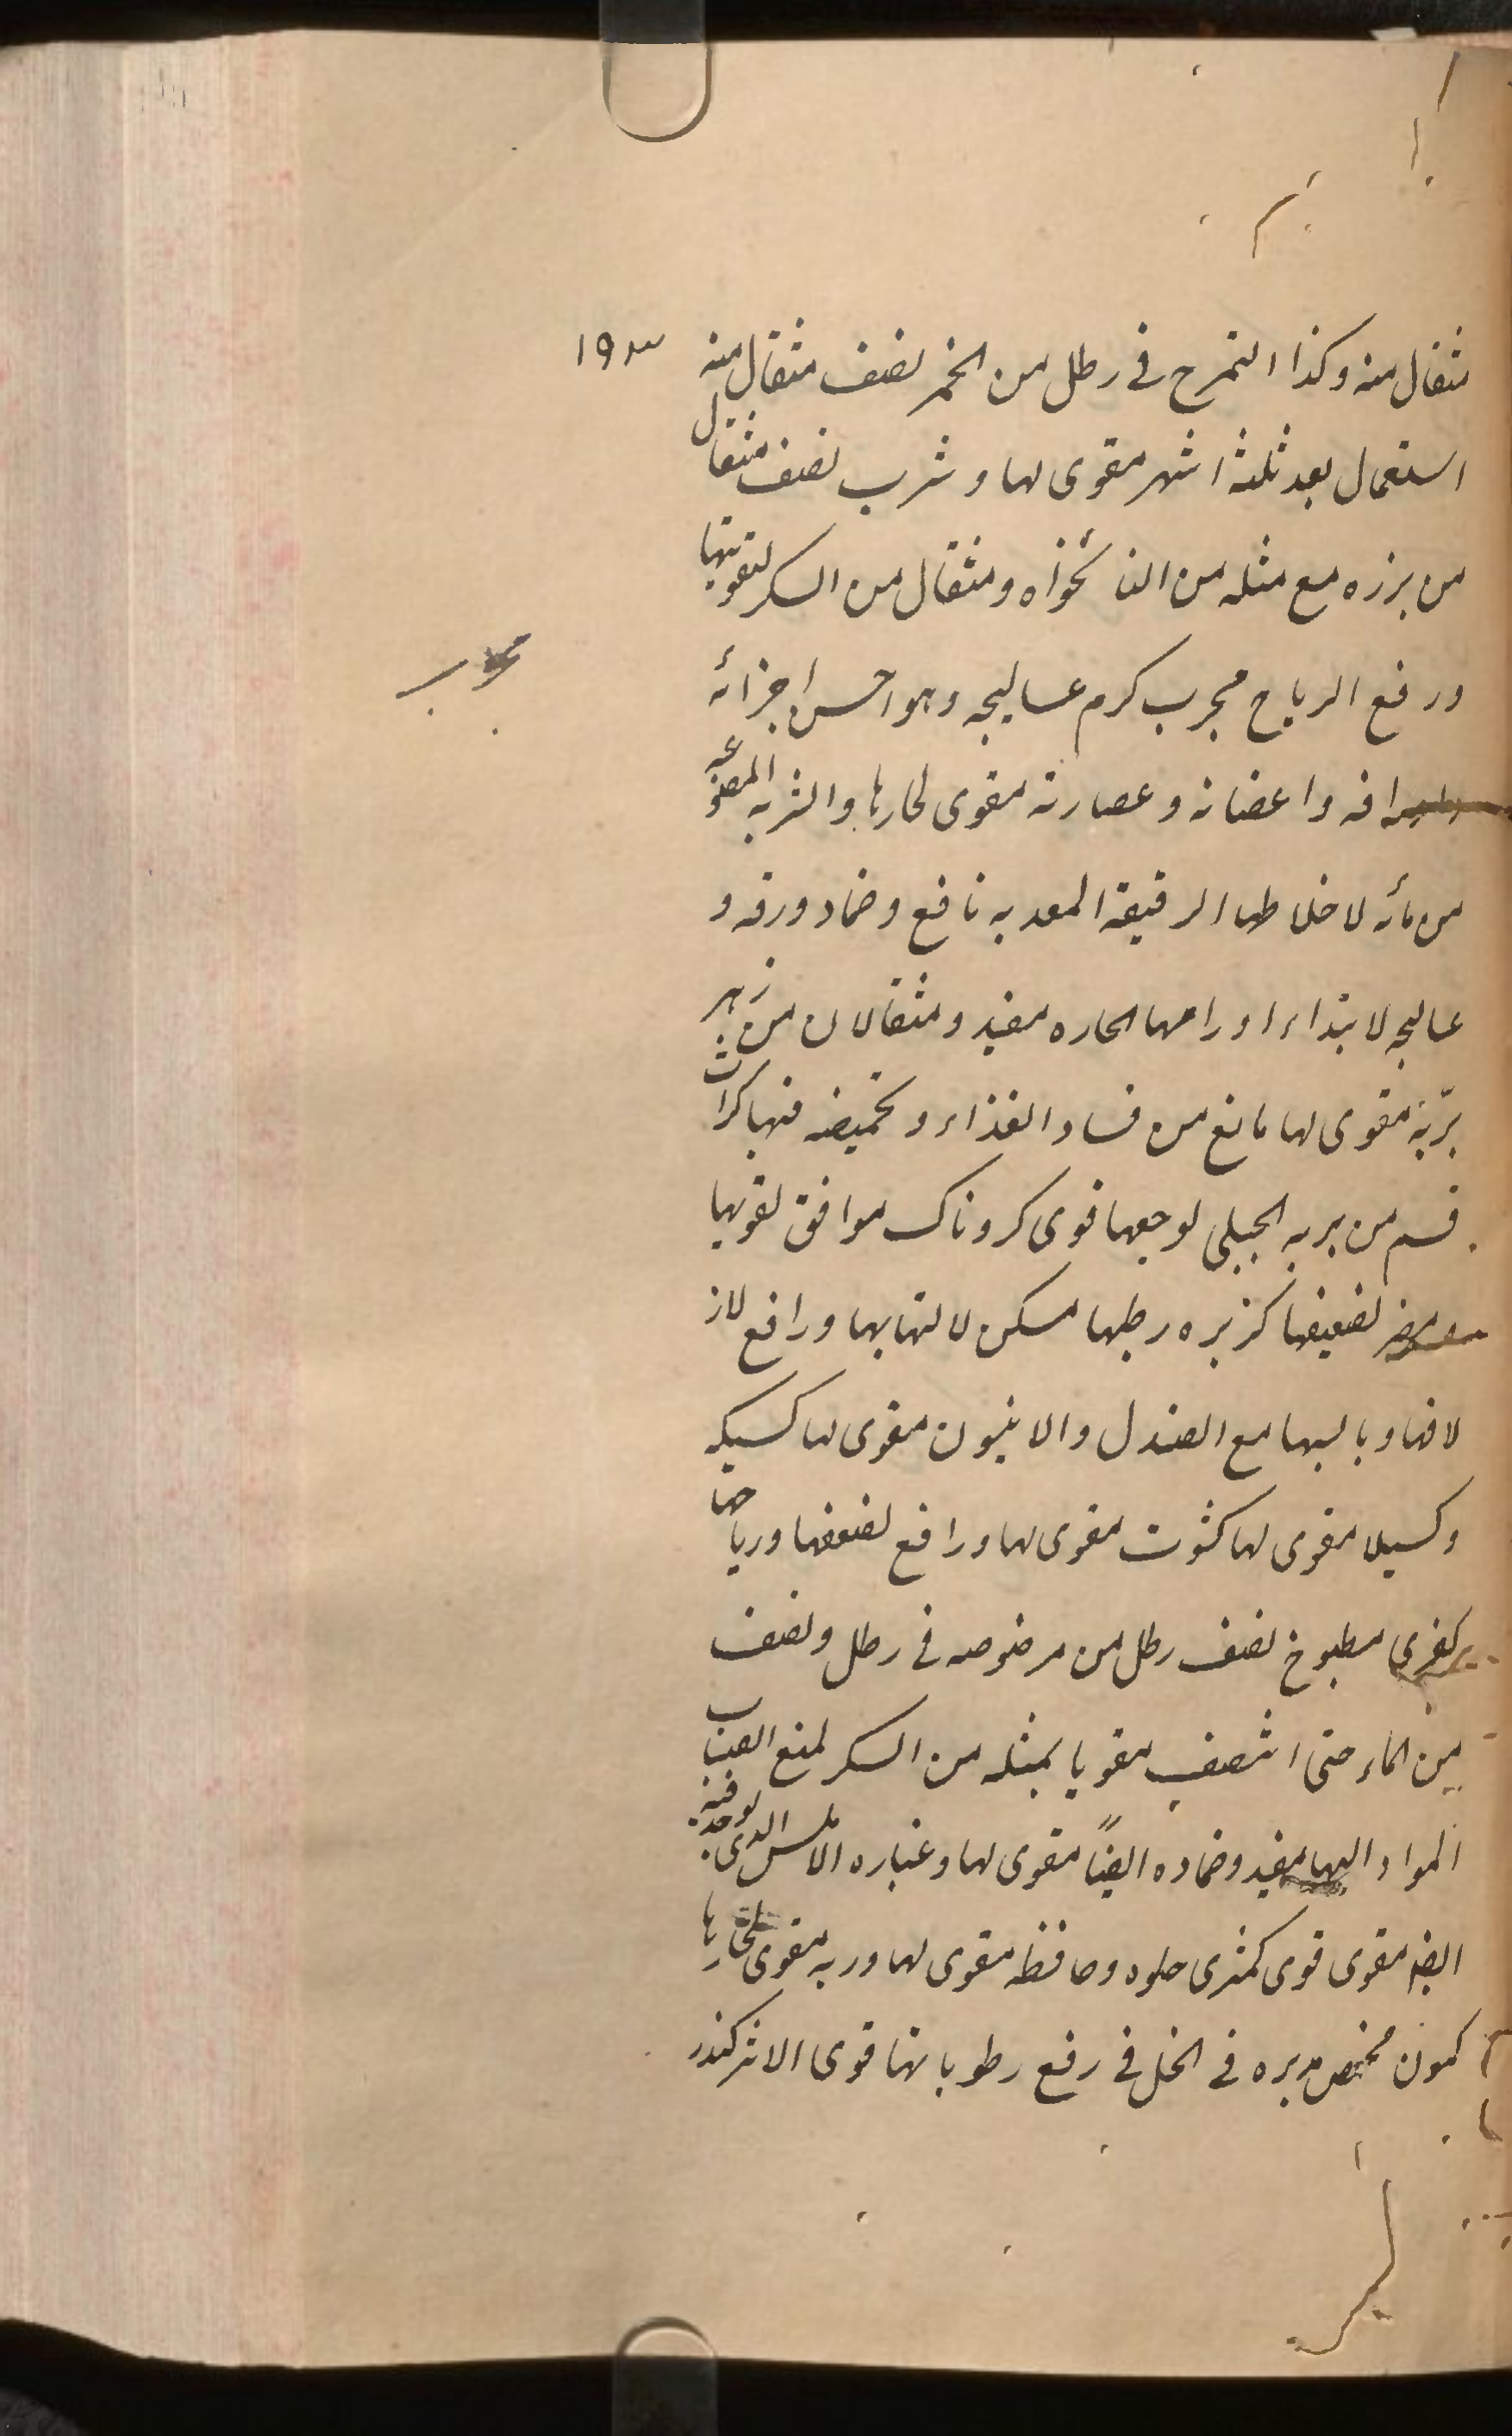 ۱۹۳
مثقال منه وكذا التمرخ فى رطل من الخمر نصف مثقال منه
استعمال بعد ثلثة اشهر مقوى لها و شرب نصف مثقال
من بزره مع مثله من النانخواه ومثقال من السكر لتقويتها
ورفع الرياح مجرب كرم عساليجه وهو احسن اجزائه
مجرب
واعضانه وعصارته مقوى لحارها والشربه
من مائه لاخلاطها الرقيقة المعديه نافع وضماد ورقه و
عساليجه لابتداء اورامها الحاره مفيد ومثقالان من زهر
بريّة مقوى لها مانع من فساد الغذاء وتحميضه فيها كراث
قسم من بريه الجبلى لوجعها قوى كروناك موافق لقوتها
لضعيفها كزبره رطبها مسكن لالتهابها ورافع لاز
لاقها ويابسها مع الصندل والانيسون مقوى لها كسيكه
وكسيلا مقوى لها كشوث مقوى لها ورافع لضعفها ورياحها
كفرى مطبوخ نصف رطل من مرضوضه فى رطل ونصف
من الماء حتى انتصف مقويا بمثله من السكر لمنع انصباب
المواد اليها مفيد وضماده ايضًا مقوى لها وغباره الاملس الذى
ايضا مقوى قوى كمثرى حلوه وحامضه مقوى لها وربه مقوى لحارها
كمون مختص مدبره فى الخل فى رفع رطوباتها قوى الاثر كندر